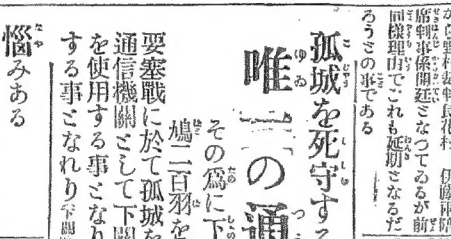 席判事係開廷となつてゐるが前
同樣理由でこれも延期となるだ
ろうとの事である
孤城を死守す
唯一の通
その爲に下
鳩二百羽を
要塞戰に於て孤城を
通信機關として下關
を使用する事となり
する事となれり
惱みある